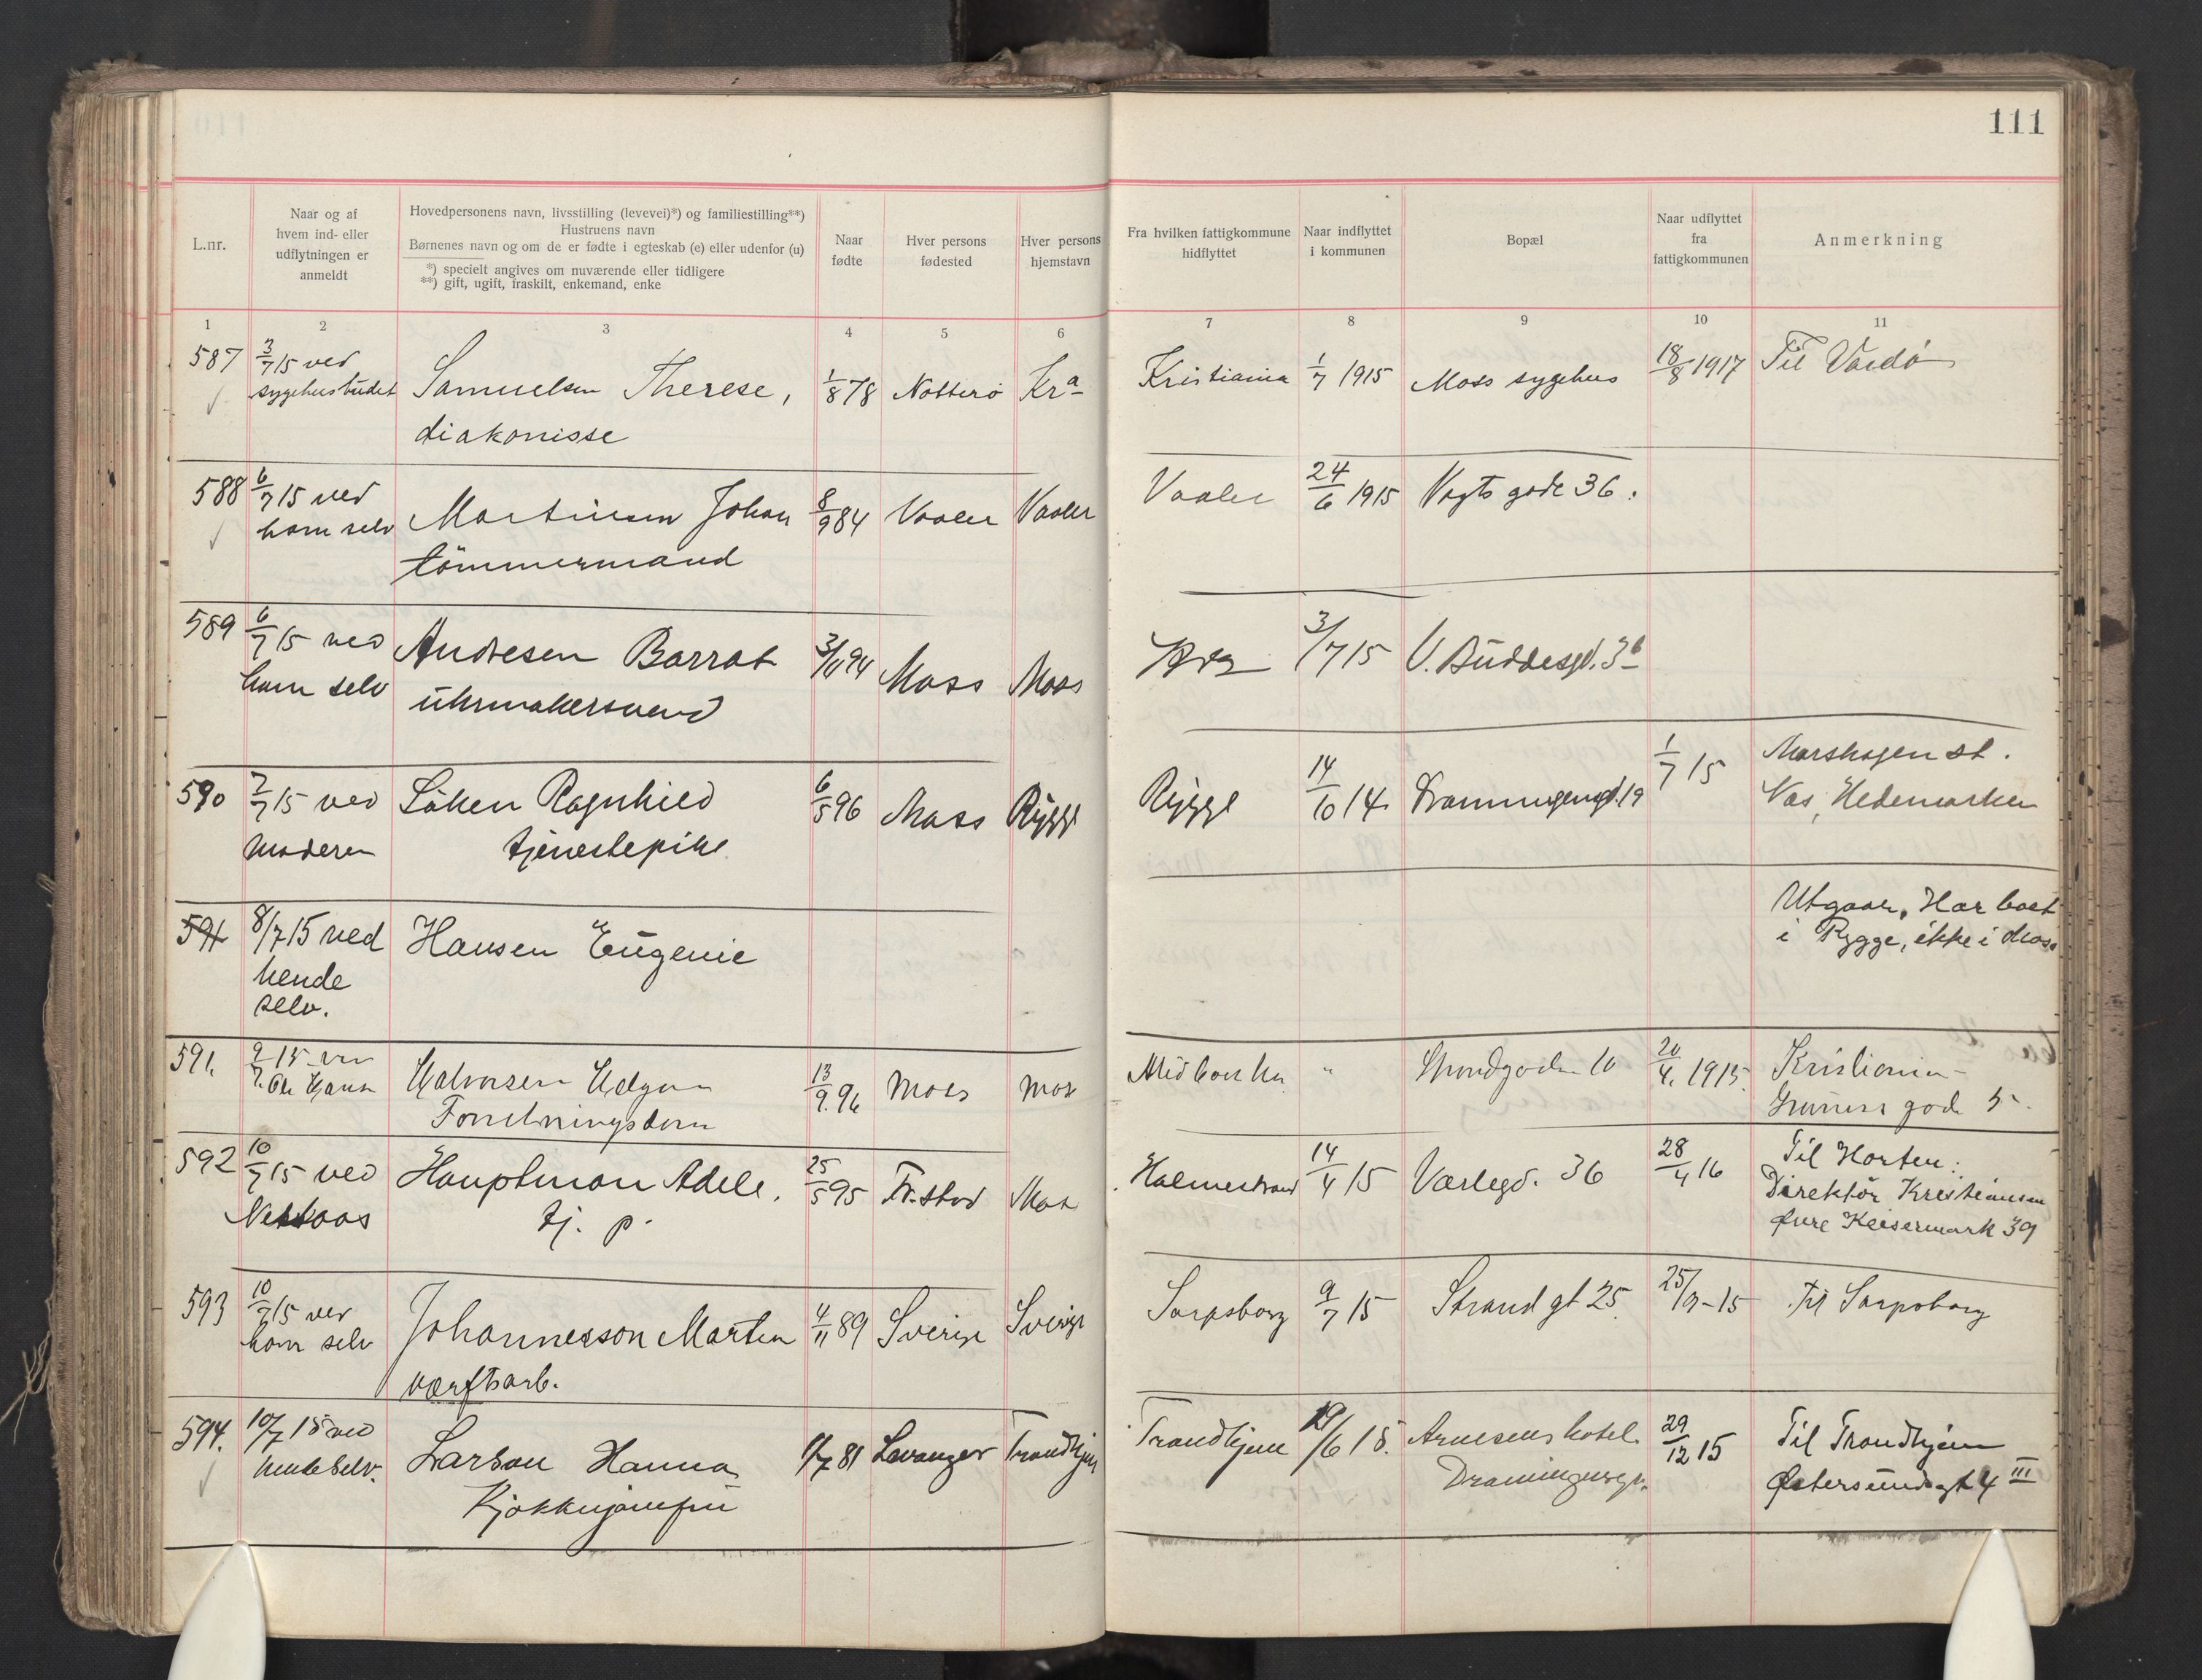 111
L.nr.
Naar og af
hvem ind- eller
udflytningen er
anmeldt
Hovedpersonens navn, livsstilling (levevei)*) og familiestilling**)
Hustruens navn
Børnenes navn og om de er fødte i egteskab (e) eller udenfor (u)
*) specielt angives om nuværende eller tidligere
**) gift, ugift, fraskilt, enkemand, enke
Naar
fødte
Hver persons
fødested
Hver persons
hjemstavn
Fra hvilken fattigkommune
hidflyttet
Naar indflyttet
i kommunen
Bopæl
Naar udflyttet
fra
fattigkommunen
Anmerkning
1 2 3 4 5 6 7 8 9 10 11
587 3/7 15 ved Samuelsen Therese, 1/8 78 Nötterö Kra Kristiania 1/7 1915 Moss sygehus 18/8 1917 Til Vardö
sygehusbudet
diakonisse
588 6/7 15 ved Martinsen Johan 8/9 84 Vaaler Vaaler Vaaler 24/6 1915 Vogts gade 36.
ham selv
tömmermand
589 6/7 15 ved Andresen Barrat Moss Moss Kra 3/7 15 V. Buddesgd. 36
ham selv
uhrmakersvend
590 7/7 15 ved Löken Ragnhild 6/5 96 Moss Rygge Rygge 14/10 14 Dronningensgd. 19 1/7 15
moderen tjenestepike Næs, Hedemarken
591 8/7 15 ved Hansen Eugenie Utgaar, Har boet
hende i Rygge, ikke i Moss
selv.
591. 9/7 15 ved Halvorsen 13/9 96 Moss Moss " Strandgaden 10 20/4. 1915. Kristiania
gade 5.
592 10/7 15 ved Hauptman Adele. 25/5 95 Fr.stad Moss Holmestrand 14/4 15 Varlegd. 36 28/4 16 Til Horten:
tj. p. Direktör Kristiansen
Øvre Keisermark 39
593 10/7 15 ved Johannesson Martin 4/11 89 Sverige Sverige Sarpsborg 9/7 15 Strand gt 25. 25/9-15 Til Sarpsborg
ham selv
værftsarb.
594. 10/7 15 ved Larsen Hanna 1/7 81 Levanger Trondhjem Trondhjem 29/6 15. Arnesens hotel 29/12 15 Til Trondhjem
hende selv. Kjökkenjomfru Dronningensgt. Østersundsgt 4 III